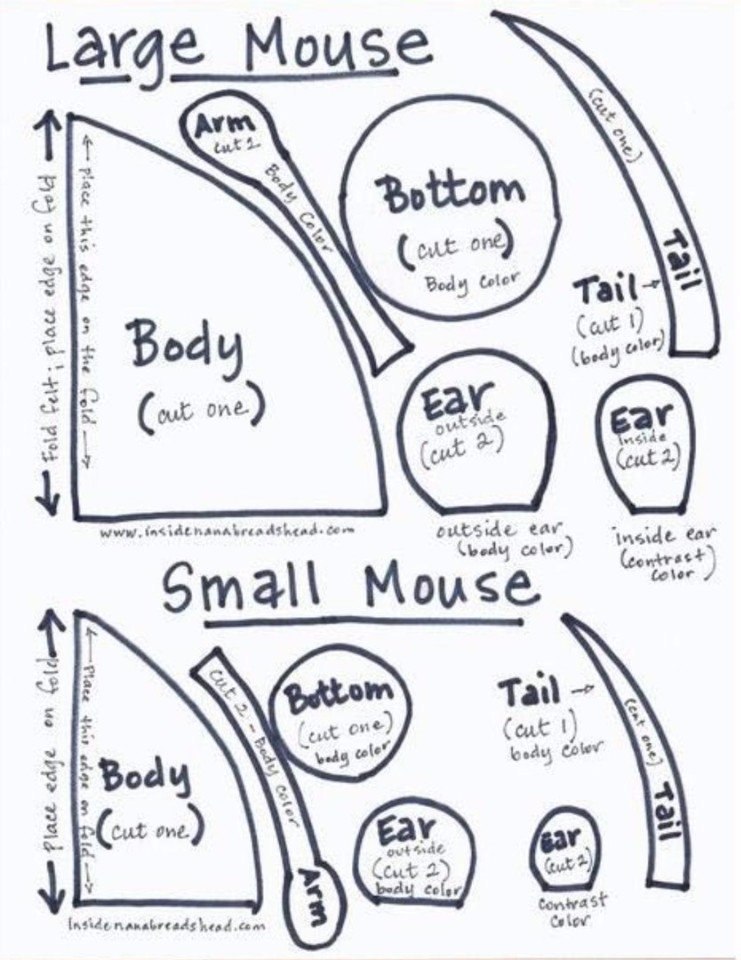 Large Mouse
Fold felt; place edge on fold
← place this edge on the fold →
Body
(cut one)
www.insidenanabreadshead.com
Arm
cut 2
Body Color
Bottom
(cut one)
Body color
(cut one)
Tail
Tail →
(cut 1)
(body color)
Ear
outside
(cut 2)
outside ear
(body color)
Ear
inside
(cut 2)
inside ear
(contrast)
color
Small Mouse
Place edge on fold
← Place this edge on fold →
Body
(cut one)
Insidenanabreadshead.com
cut 2 - Body color
Arm
Bottom
(cut one)
body color
Ear
outside
(cut 2)
body color
Tail →
(cut 1)
body color
(cut one)
Tail
Ear
(cut 2)
contrast
color